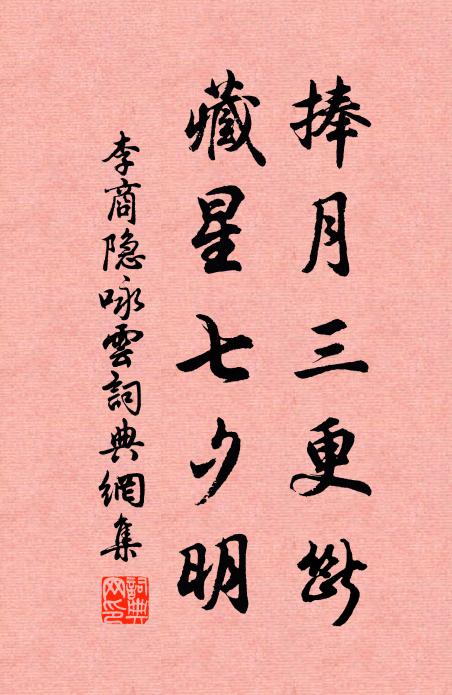 捧月三更斷
藏星七夕明
李商隐咏雲詞典網集
詞典網印